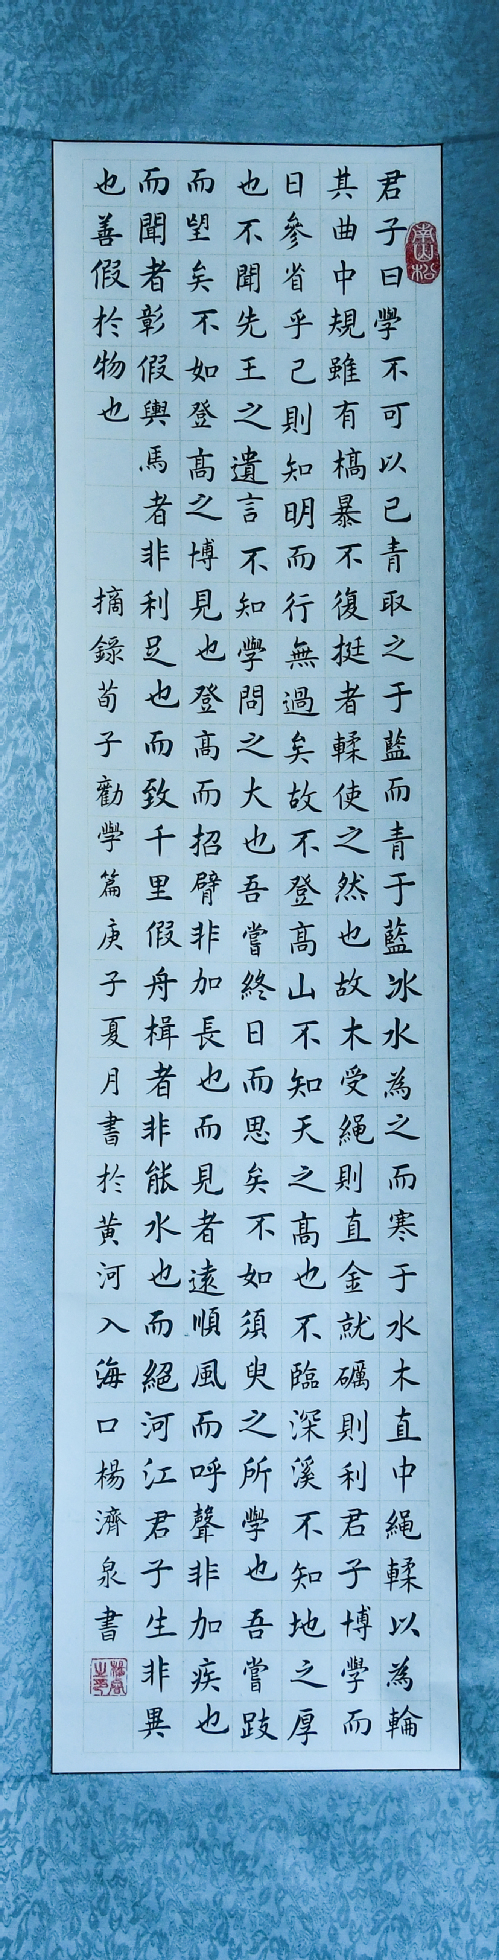 君子曰學不可以已青取之于藍而青于藍冰水為之而寒于水木直中繩輮以為輪
其曲中規雖有槁暴不復挺者輮使之然也故木受繩則直金就礪則利君子博學而
日參省乎己則知明而行無過矣故不登高山不知天之高也不臨深溪不知地之厚
也不聞先王之遺言不知學問之大也吾嘗終日而思矣不如須臾之所學也吾嘗跂
而望矣不如登高之博見也登高而招臂非加長也而見者遠順風而呼聲非加疾也
而聞者彰假輿馬者非利足也而致千里假舟楫者非能水也而絕河江君子生非異
也善假於物也
摘錄荀子勸學篇庚子夏月書於黃河入海口楊濟泉書
南山松